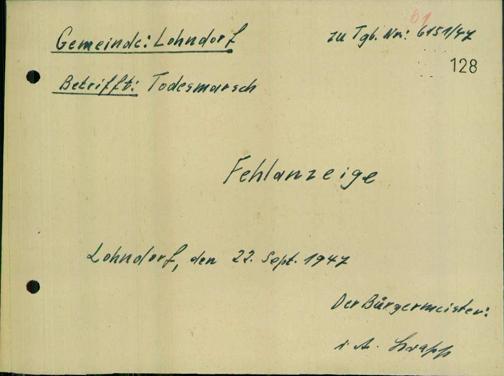 Gemeinde: Lohndorf
zu Tgb. Nr.: 6151/47
128
Betrifft: Todesmarsch
Fehlanzeige
Lohndorf, den 22. Sept. 1947
Der Bürgermeister:
i. A.